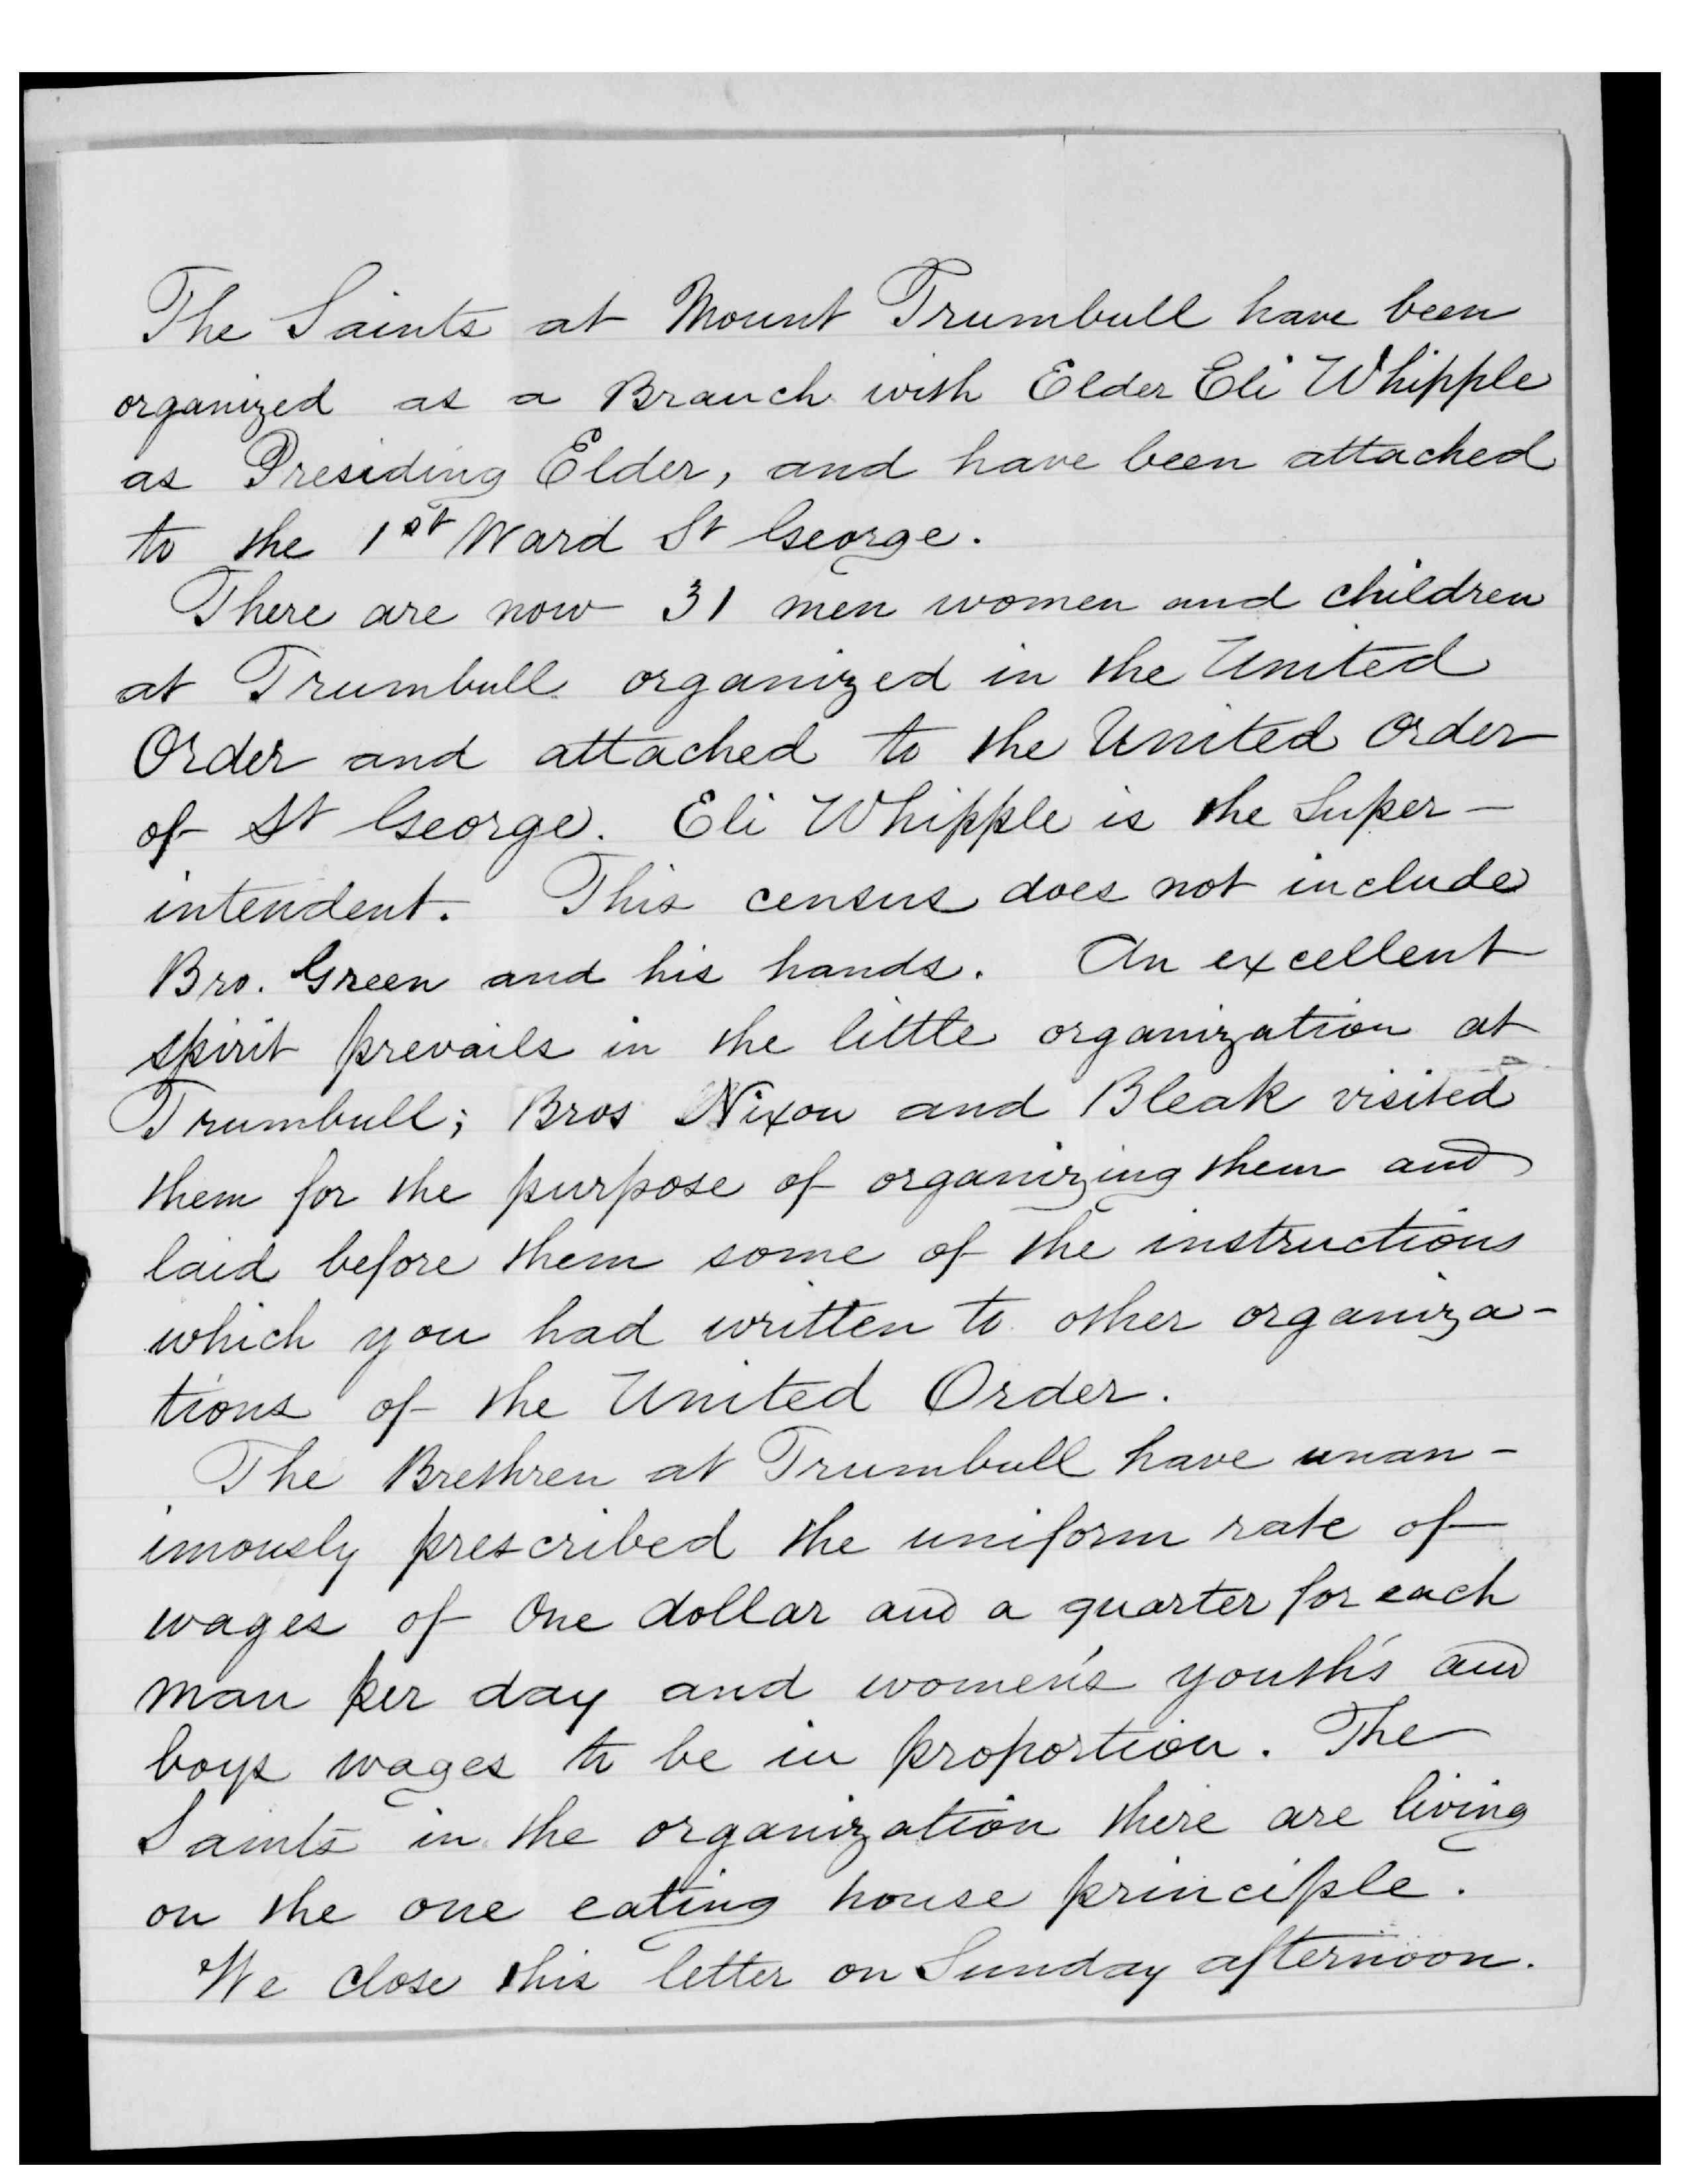 The Saints at Mount Trumbull have been
organized as a Branch with Elder Eli Whipple
as Presiding Elder, and have been attached
to the 1st Ward St George.
There are now 31 men women and children
at Trumbull organized in the United
Order and attached to the United Order
of St George. Eli Whipple is the Super-
intendent. This census does not include
Bro. Green and his hands. An excellent
spirit prevails in the little organization at
Trumbull; Bros Nixon and Bleak visited
them for the purpose of organizing them and
laid before them some of the instructions
which you had written to other organiza-
tions of the United Order.
The Brethren at Trumbull have unan-
imously prescribed the uniform rate of
wages of One dollar and a quarter for each
man per day and women's youth's and
boys wages to be in proportion. The
Saints in the organization there are living
on the one eating house principle.
We close this letter on Sunday afternoon.